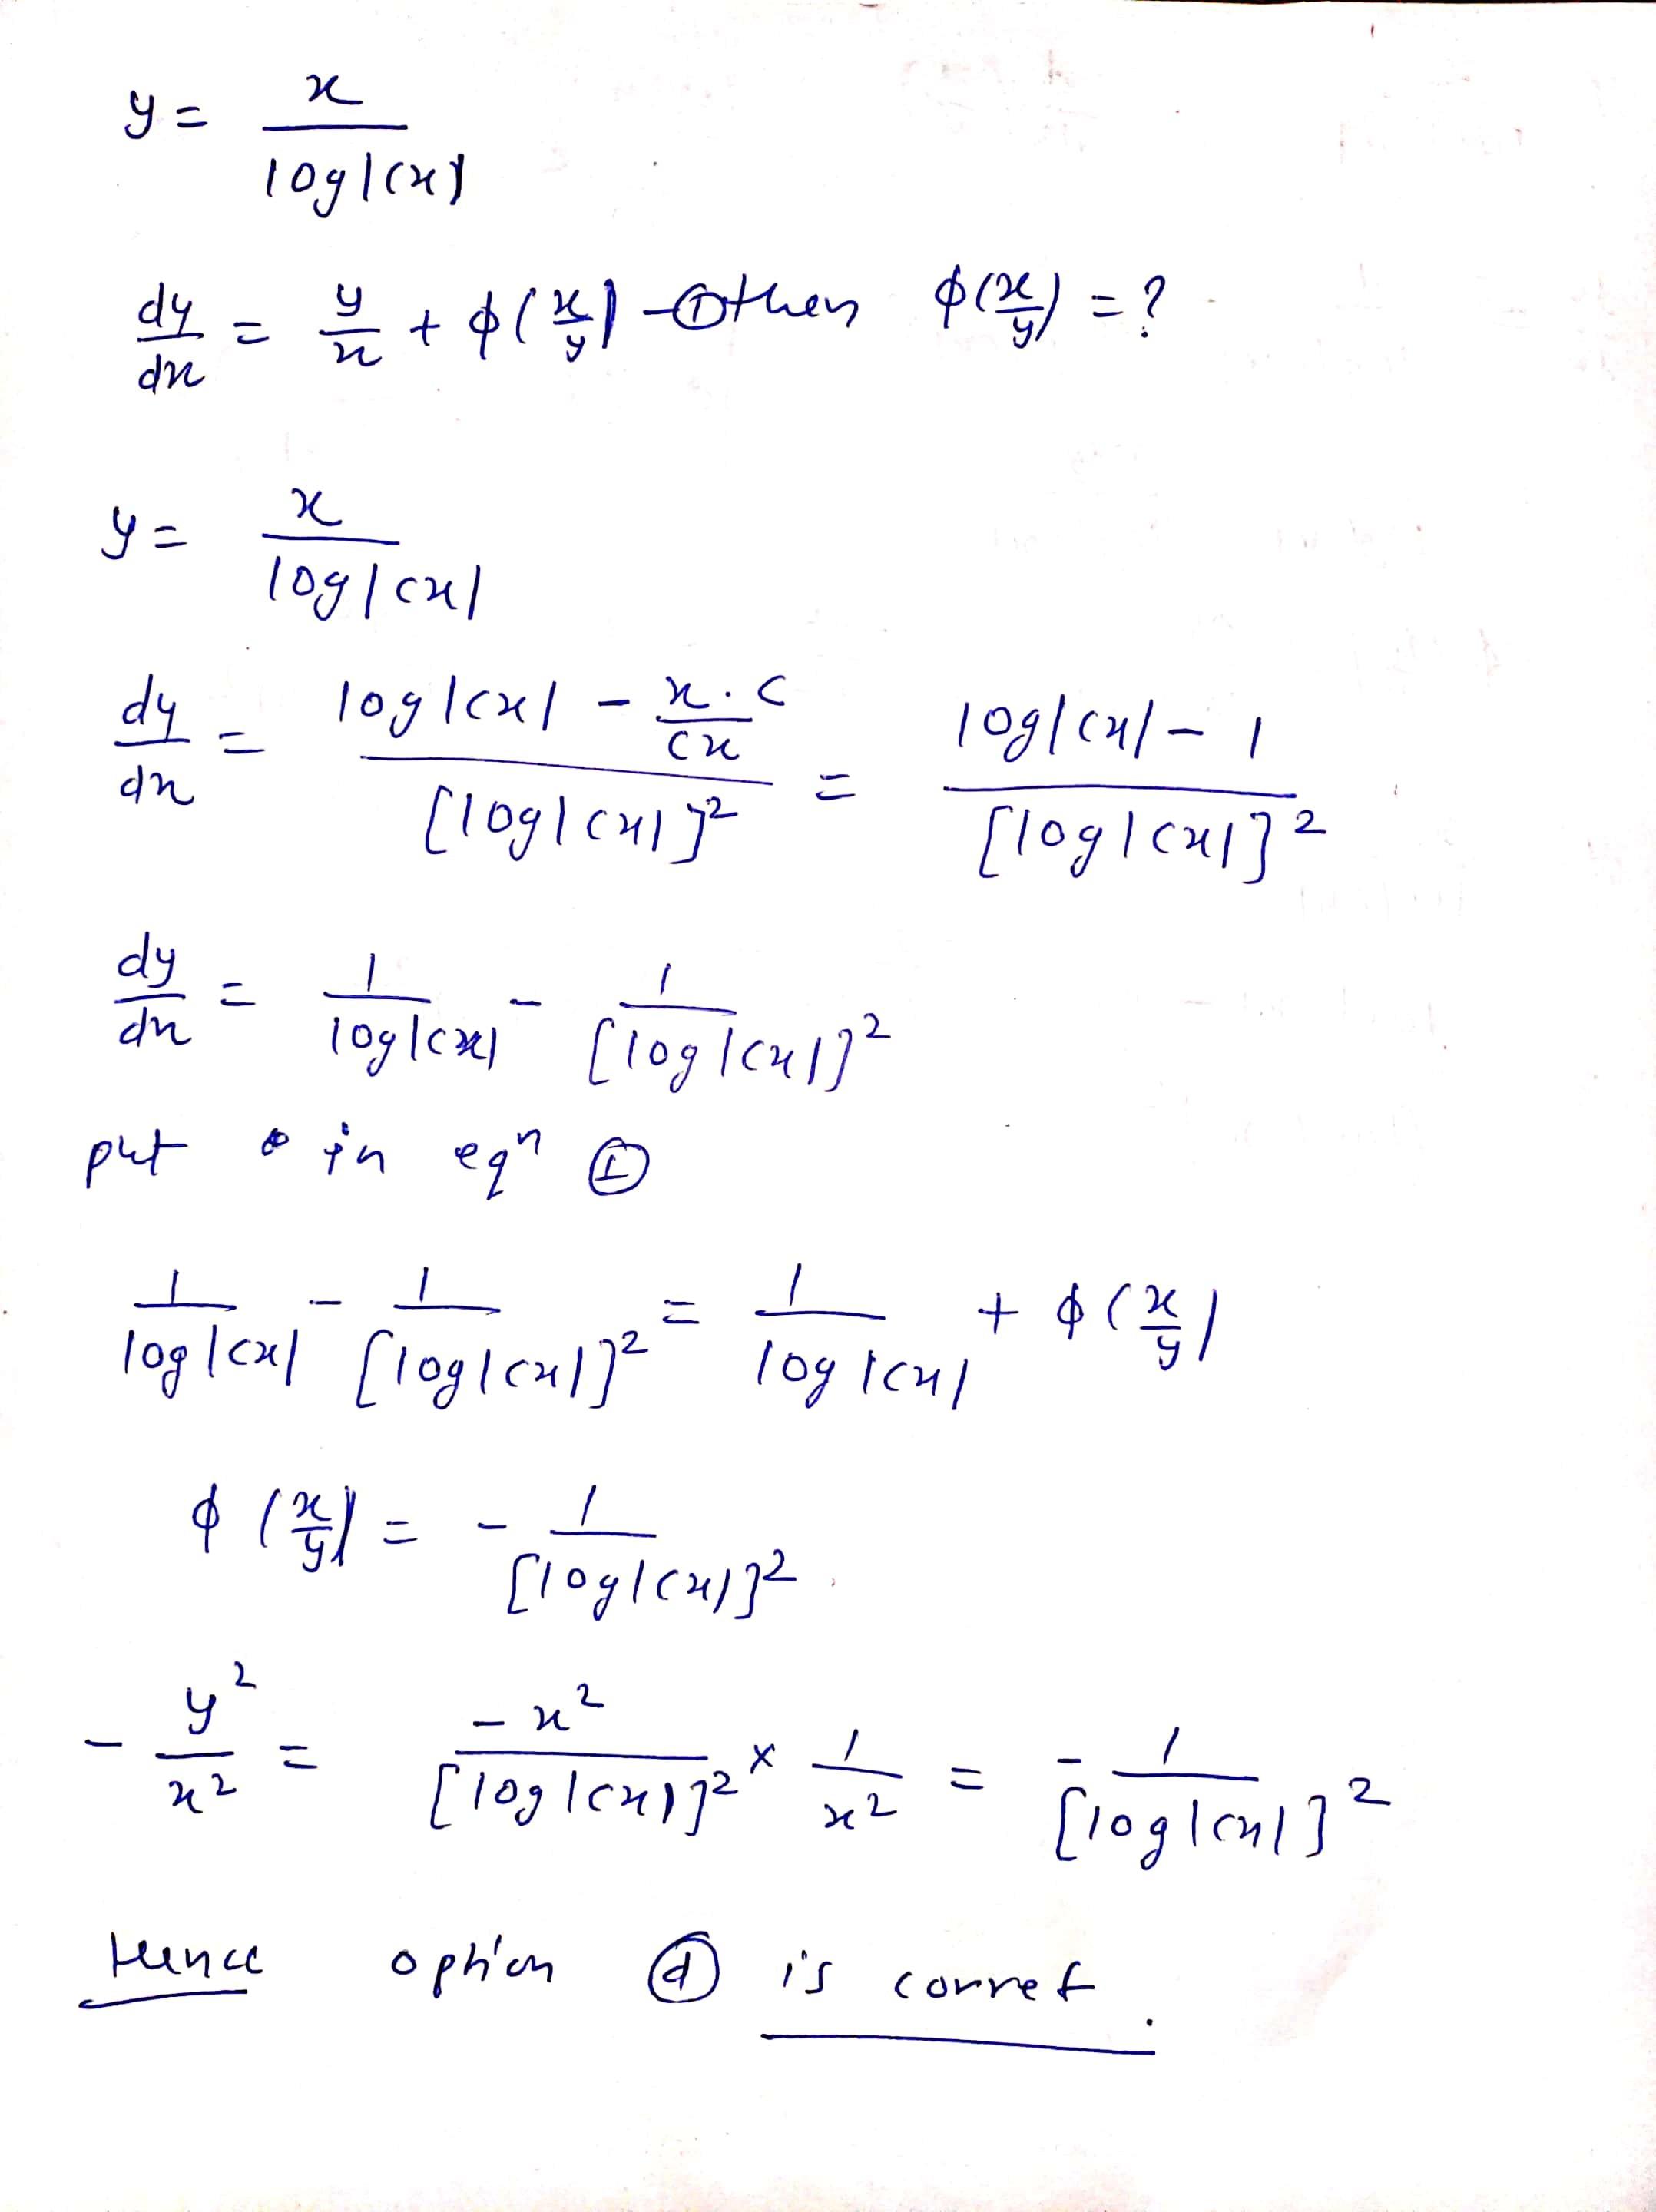 y = x / log|cx|
dy/dx = y/x + φ(x/y) -① then φ(x/y) = ?
y = x / log|cx|
dy/dx = (log|cx| - x.c/cx) / [log|cx|]² = (log|cx| - 1) / [log|cx|]²
dy/dx = 1/log|cx| - 1/[log|cx|]²
put in eqⁿ ①
1/log|cx| - 1/[log|cx|]² = 1/log|cx| + φ(x/y)
φ(x/y) = - 1/[log|cx|]²
- y²/x² = -x²/[log|cx|]² × 1/x² = -1/[log|cx|]²
Hence option ⓓ is corret.